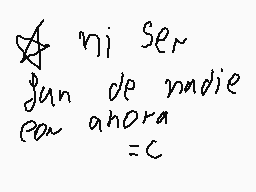 ☆ ni ser
fan de nadie
por ahora
=c